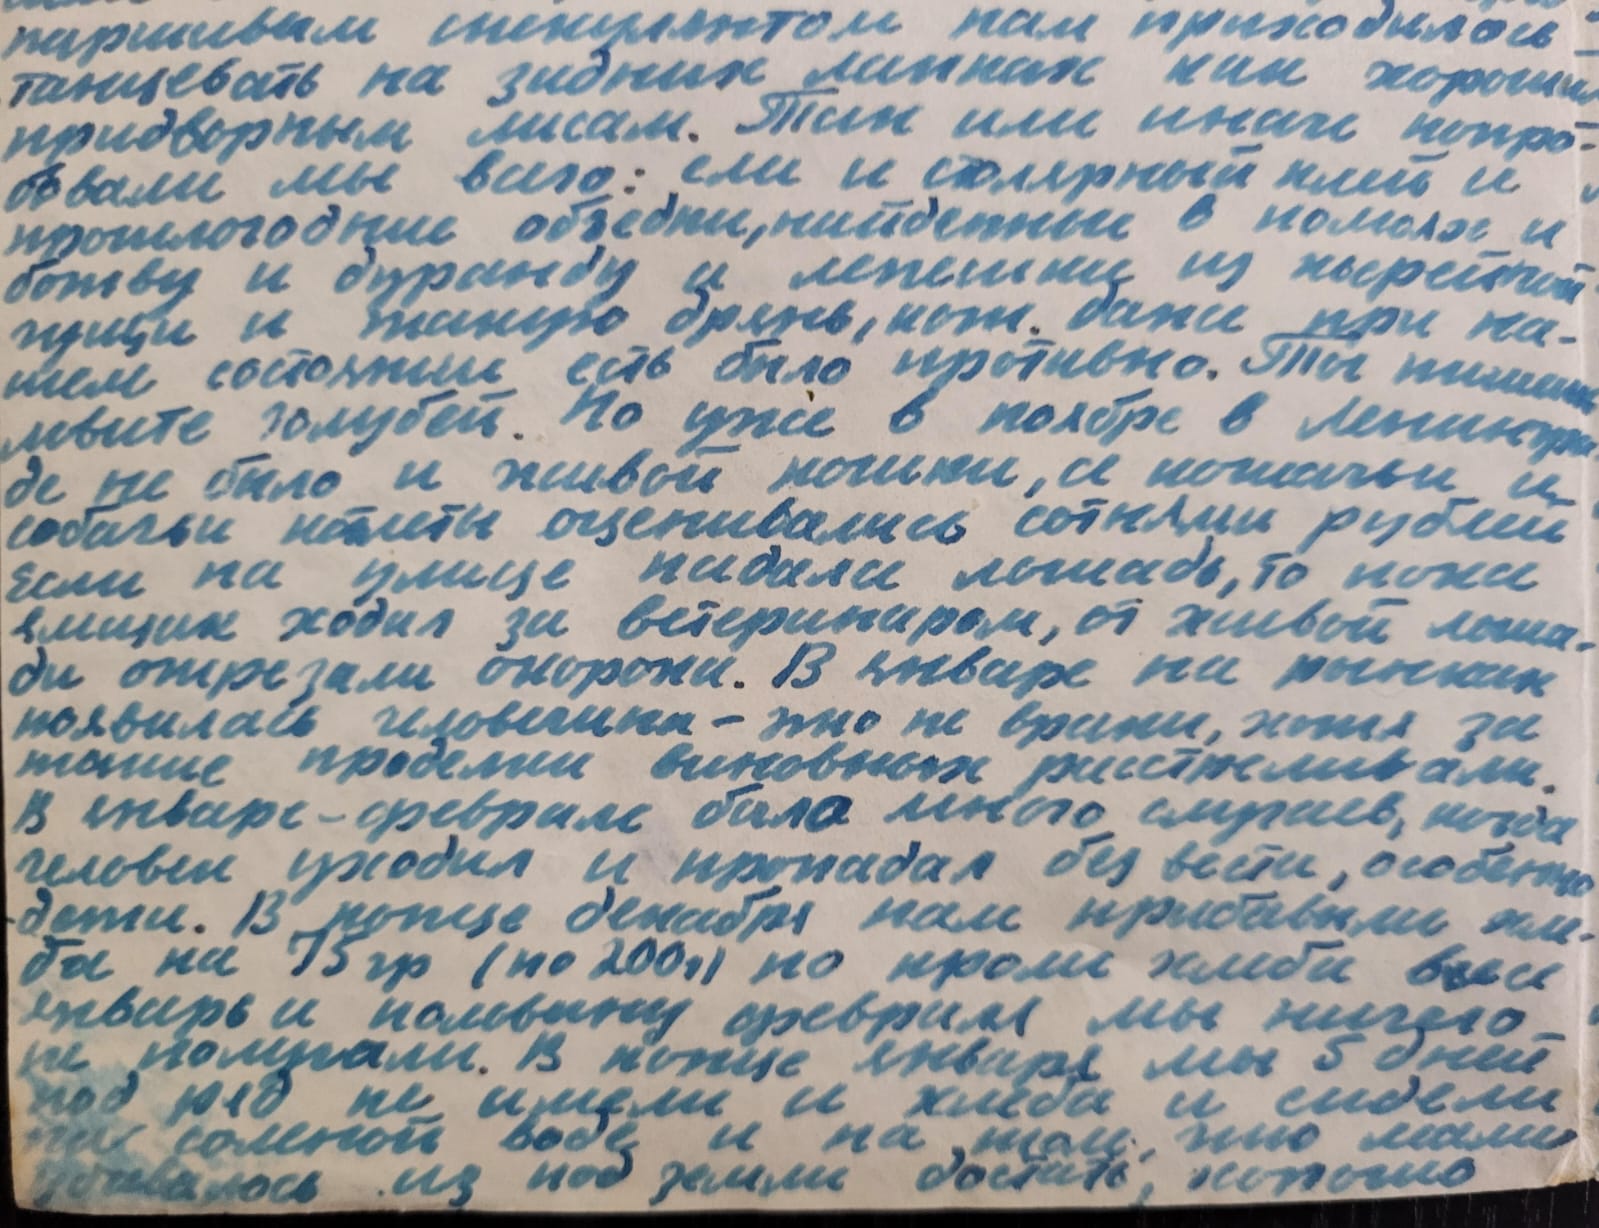 паршивым спекулянтом нам приходилось
танцевать на задних лапках как хорошим
придворным лисам. Так или иначе попро-
бовали мы всего: ели и столярный клей и
прошлогодние объедки, найденные в помоях и
ботву и дуранду и лепешки из кофейной
гущи и такую дрянь, кот. даже при на-
шем состоянии есть было противно. Ты пишешь
ловите голубей. Но уже в ноябре в Ленингра
де не было и живой кошки, а кошачьи и
собачьи котлеты оценивались сотнями рублей
Если на улице падала лошадь, то пока
ямщик ходил за ветеринаром, от живой лоша-
ди отрезали окорока. В январе на рынках
появилась человечина - это не враки, хотя за
такие проделки виновных расстреливали.
В январе-феврале было много случаев, когда
человек уходил и пропадал без вести, особенно
дети. В конце декабря нам прибавили хле-
ба на 75 гр (по 200 г) но кроме хлеба весь
январь и половину февраля мы ничего
не получали. В конце января мы 5 дней
под ряд не имели и хлеба и сидели
на соленой воде и на том, что маме
удавалось из под земли достать, хорошо